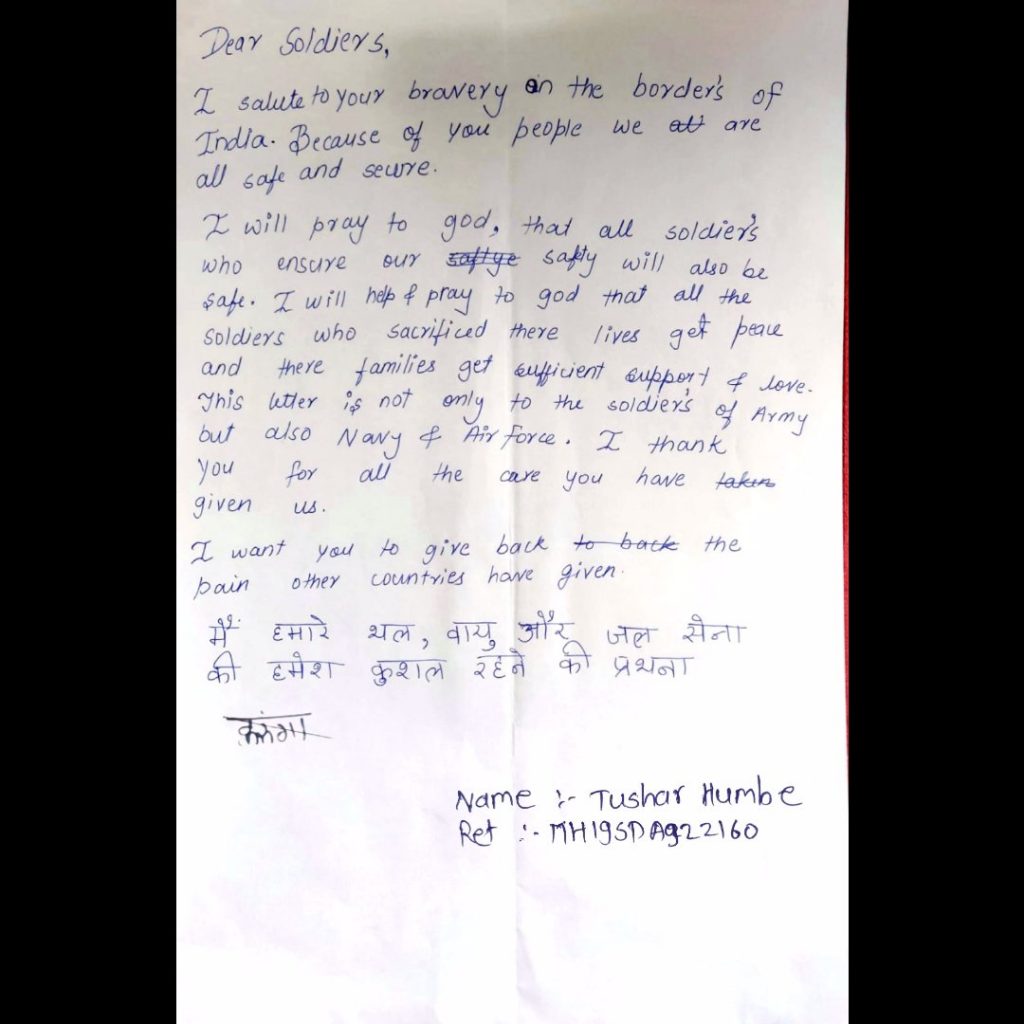 Dear Soldiers,
I salute to your bravery on the border's of
India. Because of you people we all are
all safe and secure.
I will pray to god, that all soldier's
who ensure our saftye safty will also be
safe. I will help & pray to god that all the
soldiers who sacrificed there lives get peace
and there families get sufficient support & love.
This letter is not only to the soldier's of Army
but also Navy & Air force. I thank
you for all the care you have taken
given us.
I want you to give back to back the
pain other countries have given.
मैं हमारे थल, वायु और जल सेना
की हमेश कुशल रहने की प्रथना
करूंगा
Name :- Tushar Humbe
Ret :- MH19SDA922160